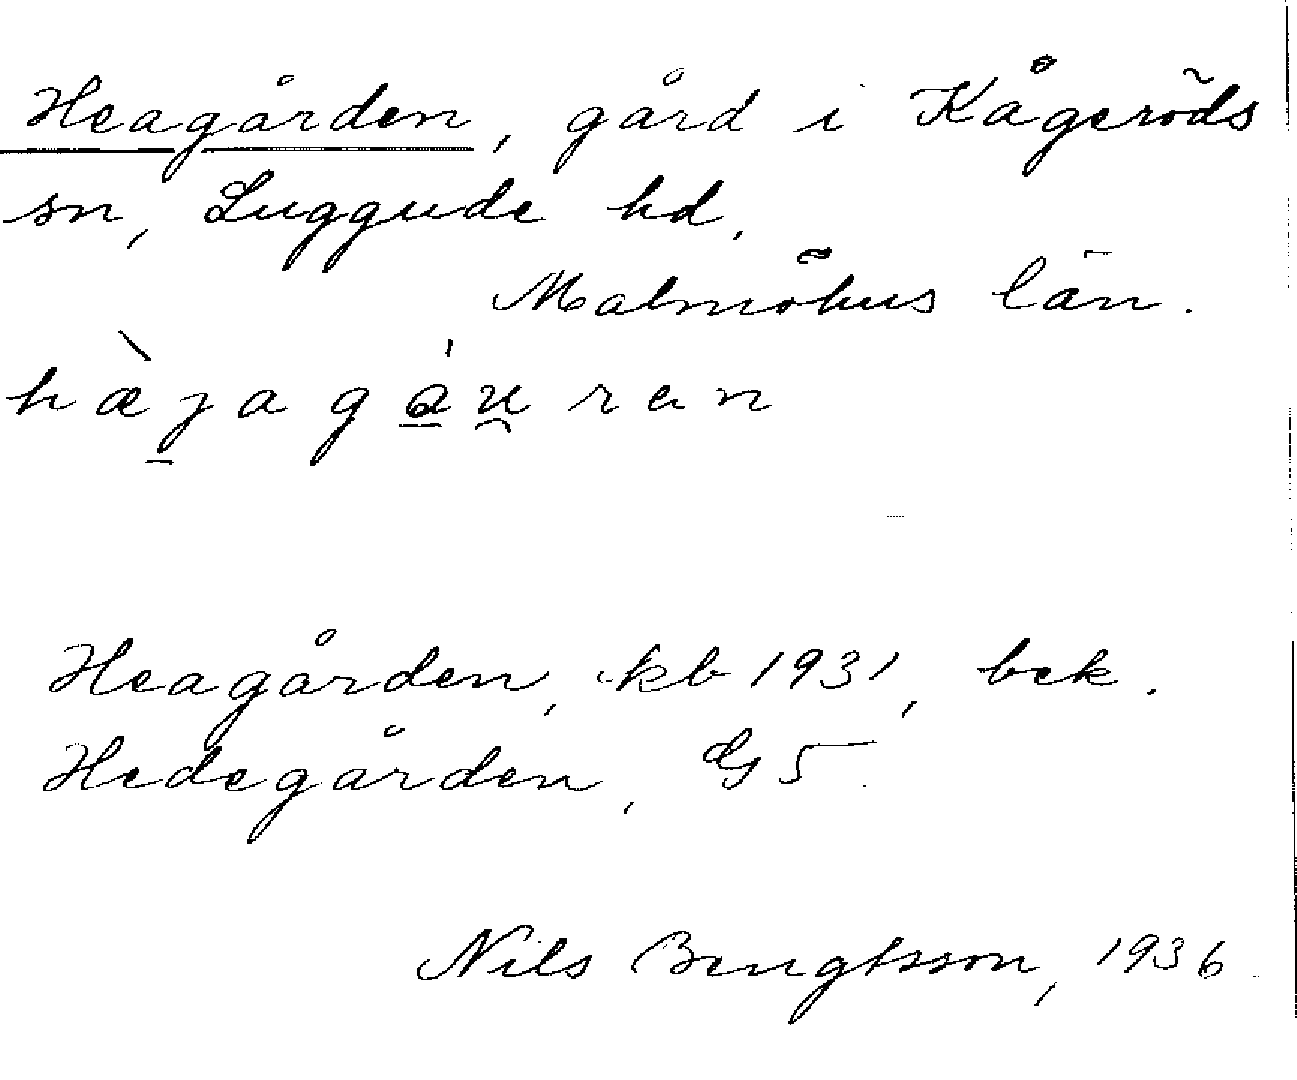 Heagården, gård i Kågeröds
sn, Luggude hd,
Malmöhus län.
hæ̀jagáu̯ran
Heagården, kb 1931, bek.
Hedegården, GS.
Nils Bengtsson, 1936